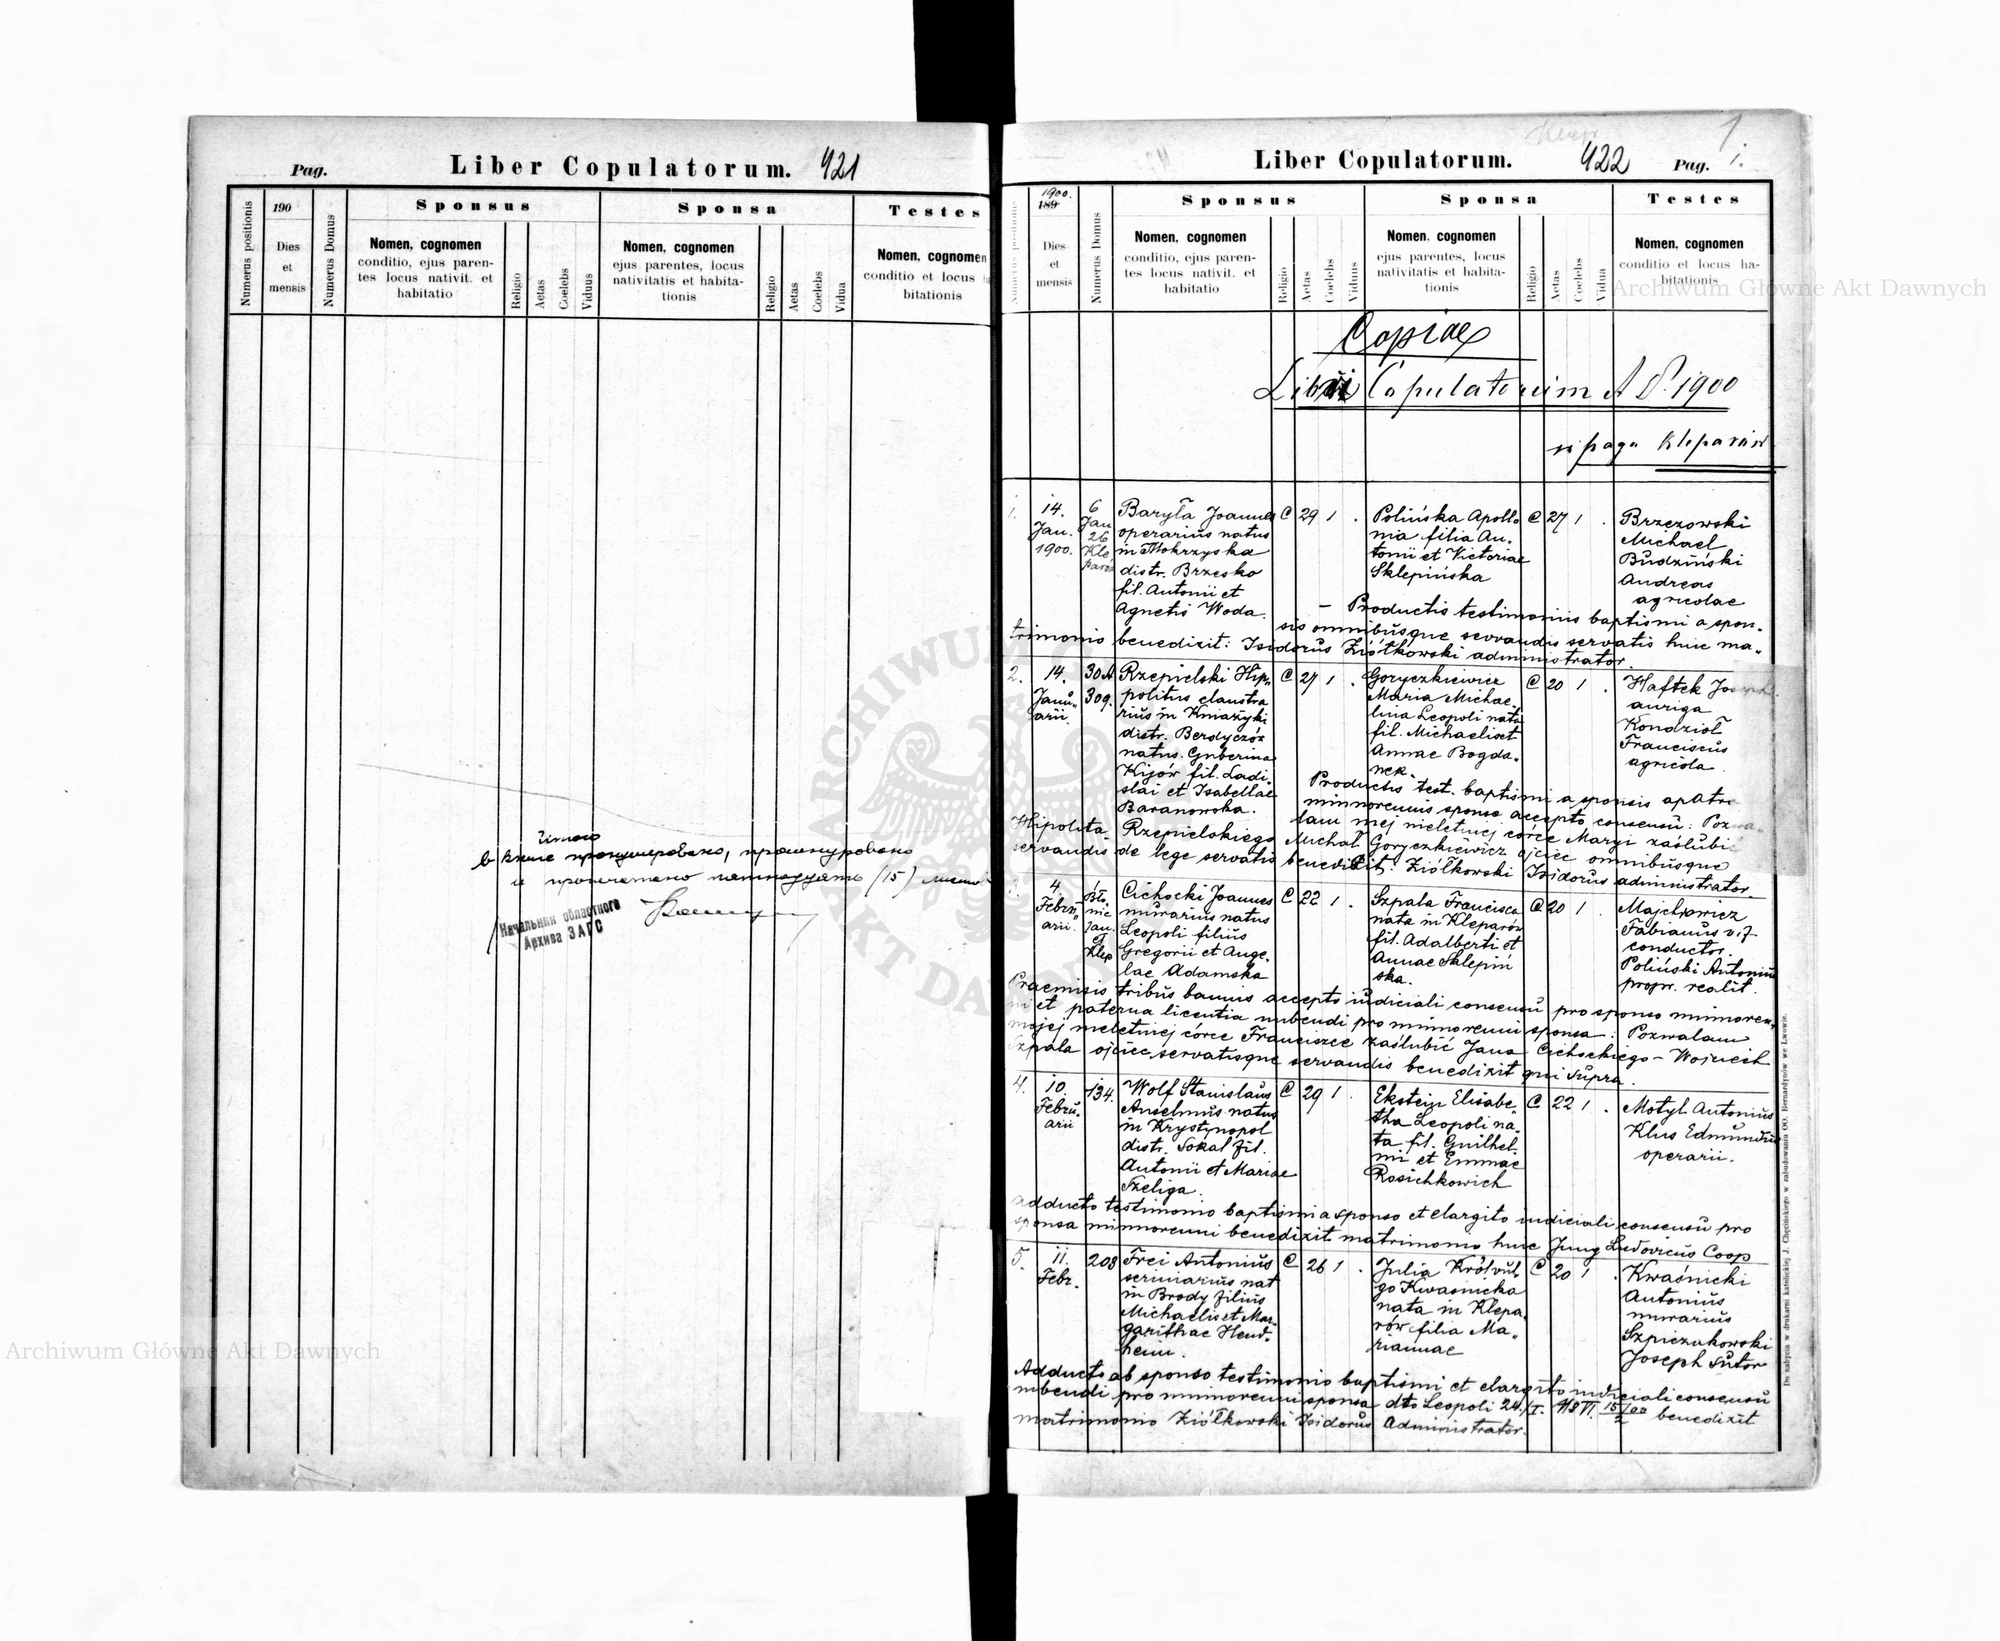 Pag.
Liber Copulatorum. 421
Numerus positionis
190
Dies
et
mensis
Numerus Domus
Sponsus
Nomen, cognomen
conditio, ejus paren-
tes locus nativit. et
habitatio
Religio
Aetas
Coelebs
Viduus
Sponsa
Nomen, cognomen
ejus parentes, locus
nativitatis et habita-
tionis
Religio
Aetas
Coelebs
Vidua
Testes
Nomen, cognomen
conditio et locus ha
bitationis
в книге пронумеровано, прошнуровано
и пропечатано пятнадцать (15) листов
Начальник областного
Архива ЗАГС
Liber Copulatorum.
422
Pag. 1.
1
Numerus positionis
1900.
189
Dies
et
mensis
Numerus Domus
Sponsus
Nomen, cognomen
conditio, ejus paren-
tes locus nativit. et
habitatio
Religio
Aetas
Coelebs
Viduus
Sponsa
Nomen, cognomen
ejus parentes, locus
nativitatis et habita-
tionis
Religio
Aetas
Coelebs
Vidua
Testes
Nomen, cognomen
conditio et locus ha-
bitationis
Copiae
Libri Copulatorum A D. 1900
pagu Kleparów
1.
14.
Jan.
1900.
6
Jan
26
Kle
parów
Baryła Joannes
operarius natus
in Mokrzyska
distr. Brzesko
fil. Antonii et
Agnetis Woda.
C 29 1 .
Polińska Apollo
nia filia An-
tonii et Victoriae
Sklepińska
C 27 1 .
Brzezowski
Michael
Budziński
Andreas
agricolae
– Productis testimoniis baptismi a spon-
sis omnibusque servandis servatis huic ma-
trimonio benedixit: Isidorus Ziółkowski administrator.
2.
14.
Janu-
arii.
30A
309.
Rzepielski Hip-
politus claustra
rius in Kniażyki
distr. Berdyczów
natus. Guberina
Kijów fil. Ladi-
slai et Isabellae
Baranowska.
C 27 1 .
Goryczkiewicz
Maria Michae-
lina Leopoli nata
fil. Michaelis et
Annae Bogda-
nek.
C 20 1 .
Haftek Joseph.
auriga
Kondzioł
Franciscus
agricola.
Productis test. baptismi a sponsis a patre
minnorennis sponsae accepto consensu: Pozwa-
lam mej nieletniej córce Maryi zaślubić
Hipolita Rzepielskiego Michał Goryczkiewicz ojciec omnibusque
servandis de lege servatis benedixit. Ziółkowski Isidorus administrator.
3.
4.
Febru-
arii.
Bło-
nie
Jan.
et
Klep
Cichocki Joannes
murarius natus
Leopoli filius
Gregorii et Ange-
lae Adamska
C 22 1 .
Szpala Francisca
nata in Kleparów
fil. Adalberti et
Annae Sklepiń
ska.
C 20 1 .
Majchrowicz
Fabianus v. f
conductor.
Poliński Antonius
propr. realit.
Praemisis tribus bannis accepto iudiciali consensu pro sponso minoren-
ni et paterna licentia nubendi pro minorenni sponsa: Pozwalam
mojej nieletniej córce Franciszce zaślubić Jana Cichockiego – Wojciech
Szpala ojciec, servatisque servandis benedixit qui supra.
4.
10.
Febru-
arii
134.
Wolf Stanislaus
Anselmus natus
in Krystynopol
distr. Sokal fil.
Antonii et Mariae
Szeliga.
C 29 1
Ekstein Elisabe-
tha Leopoli na-
ta fil. Guilhel-
mi et Emmae
Rosichkowich
C 22 1 .
Motyl Antonius
Klus Edmundus
operarii.
Adducto testimonio baptismi a sponso et elargito iudiciali consensu pro
sponsa minnorenni benedixit matrimonio huic Jung Ludovicus Coop
5.
11.
Febr.
208
Frei Antonius
serinarius nat
in Brody filius
Michaelis et Mar-
garithae Hend-
heim.
C 26 1 .
Julia Król vul-
go Kwaśnicka
nata in Klepa-
rów filia Ma-
riannae
C 20 1 .
Kwaśnicki
Antonius
murarius
Szpiczakowski
Joseph sutor
Adducto ab sponso testimonio baptismi et elargito iudiciali consensu
nubendi pro minnorenni sponsa dto Leopoli 24./I. benedixit
matrimonio Ziółkowski Isidorus Administrator.
Do nabycia w drukarni katolickiej J. Chęcińskiego w zabudowaniu OO. Bernardynów we Lwowie.
Archiwum Główne Akt Dawnych
Archiwum Główne Akt Dawnych
ARCHIWUM GŁÓWNE AKT DAWNYCH